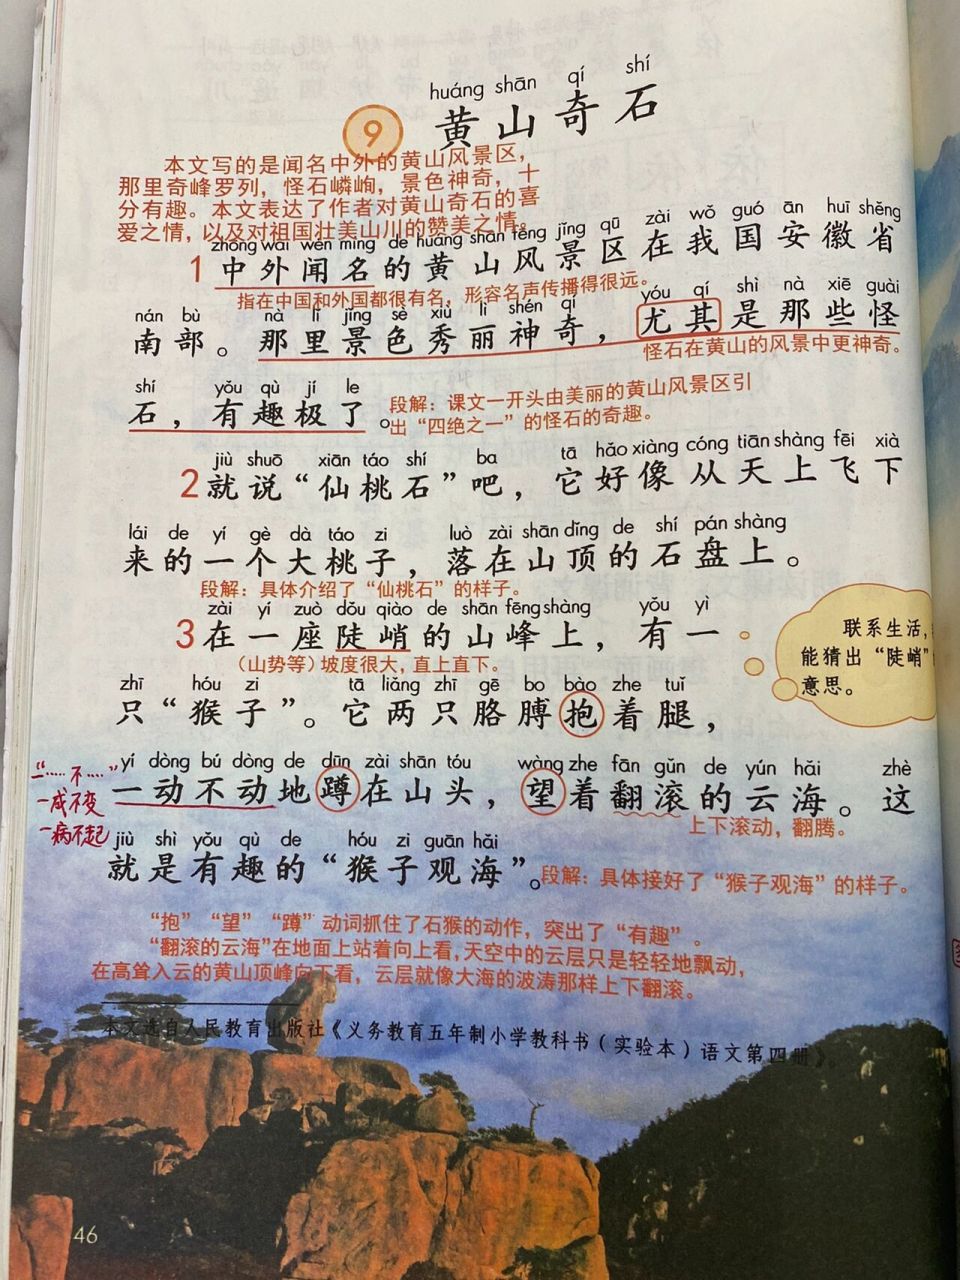 huáng shān qí shí
9 黄山奇石
本文写的是闻名中外的黄山风景区，
那里奇峰罗列，怪石嶙峋，景色神奇，十
分有趣。本文表达了作者对黄山奇石的喜
爱之情，以及对祖国壮美山川的赞美之情。
zhōng wài wén míng de huáng shān fēng jǐng qū zài wǒ guó ān huī shěng
1 中外闻名的黄山风景区在我国安徽省
指在中国和外国都很有名，形容名声传播得很远。
nán bù nà lǐ jǐng sè xiù lì shén qí yóu qí shì nà xiē guài
南部。那里景色秀丽神奇，尤其是那些怪
怪石在黄山的风景中更神奇。
shí yǒu qù jí le
石，有趣极了。
段解：课文一开头由美丽的黄山风景区引
出“四绝之一”的怪石的奇趣。
jiù shuō xiān táo shí ba tā hǎo xiàng cóng tiān shàng fēi xià
2 就说“仙桃石”吧，它好像从天上飞下
lái de yí gè dà táo zi luò zài shān dǐng de shí pán shàng
来的一个大桃子，落在山顶的石盘上。
段解：具体介绍了“仙桃石”的样子。
zài yí zuò dǒu qiào de shān fēng shàng yǒu yì
3 在一座陡峭的山峰上，有一
（山势等）坡度很大，直上直下。
联系生活，
能猜出“陡峭”
意思。
zhī hóu zi tā liǎng zhī gē bo bào zhe tuǐ
只“猴子”。它两只胳膊抱着腿，
yí dòng bú dòng de dūn zài shān tóu wàng zhe fān gǔn de yún hǎi zhè
一动不动地蹲在山头，望着翻滚的云海。这
“一……不……”
一成不变
一病不起
上下滚动，翻腾。
jiù shì yǒu qù de hóu zi guān hǎi
就是有趣的“猴子观海”。
段解：具体接好了“猴子观海”的样子。
“抱”“望”“蹲”动词抓住了石猴的动作，突出了“有趣”。
“翻滚的云海”在地面上站着向上看，天空中的云层只是轻轻地飘动，
在高耸入云的黄山顶峰向下看，云层就像大海的波涛那样上下翻滚。
本文选自人民教育出版社《义务教育五年制小学教科书（实验本）语文第四册》。
46